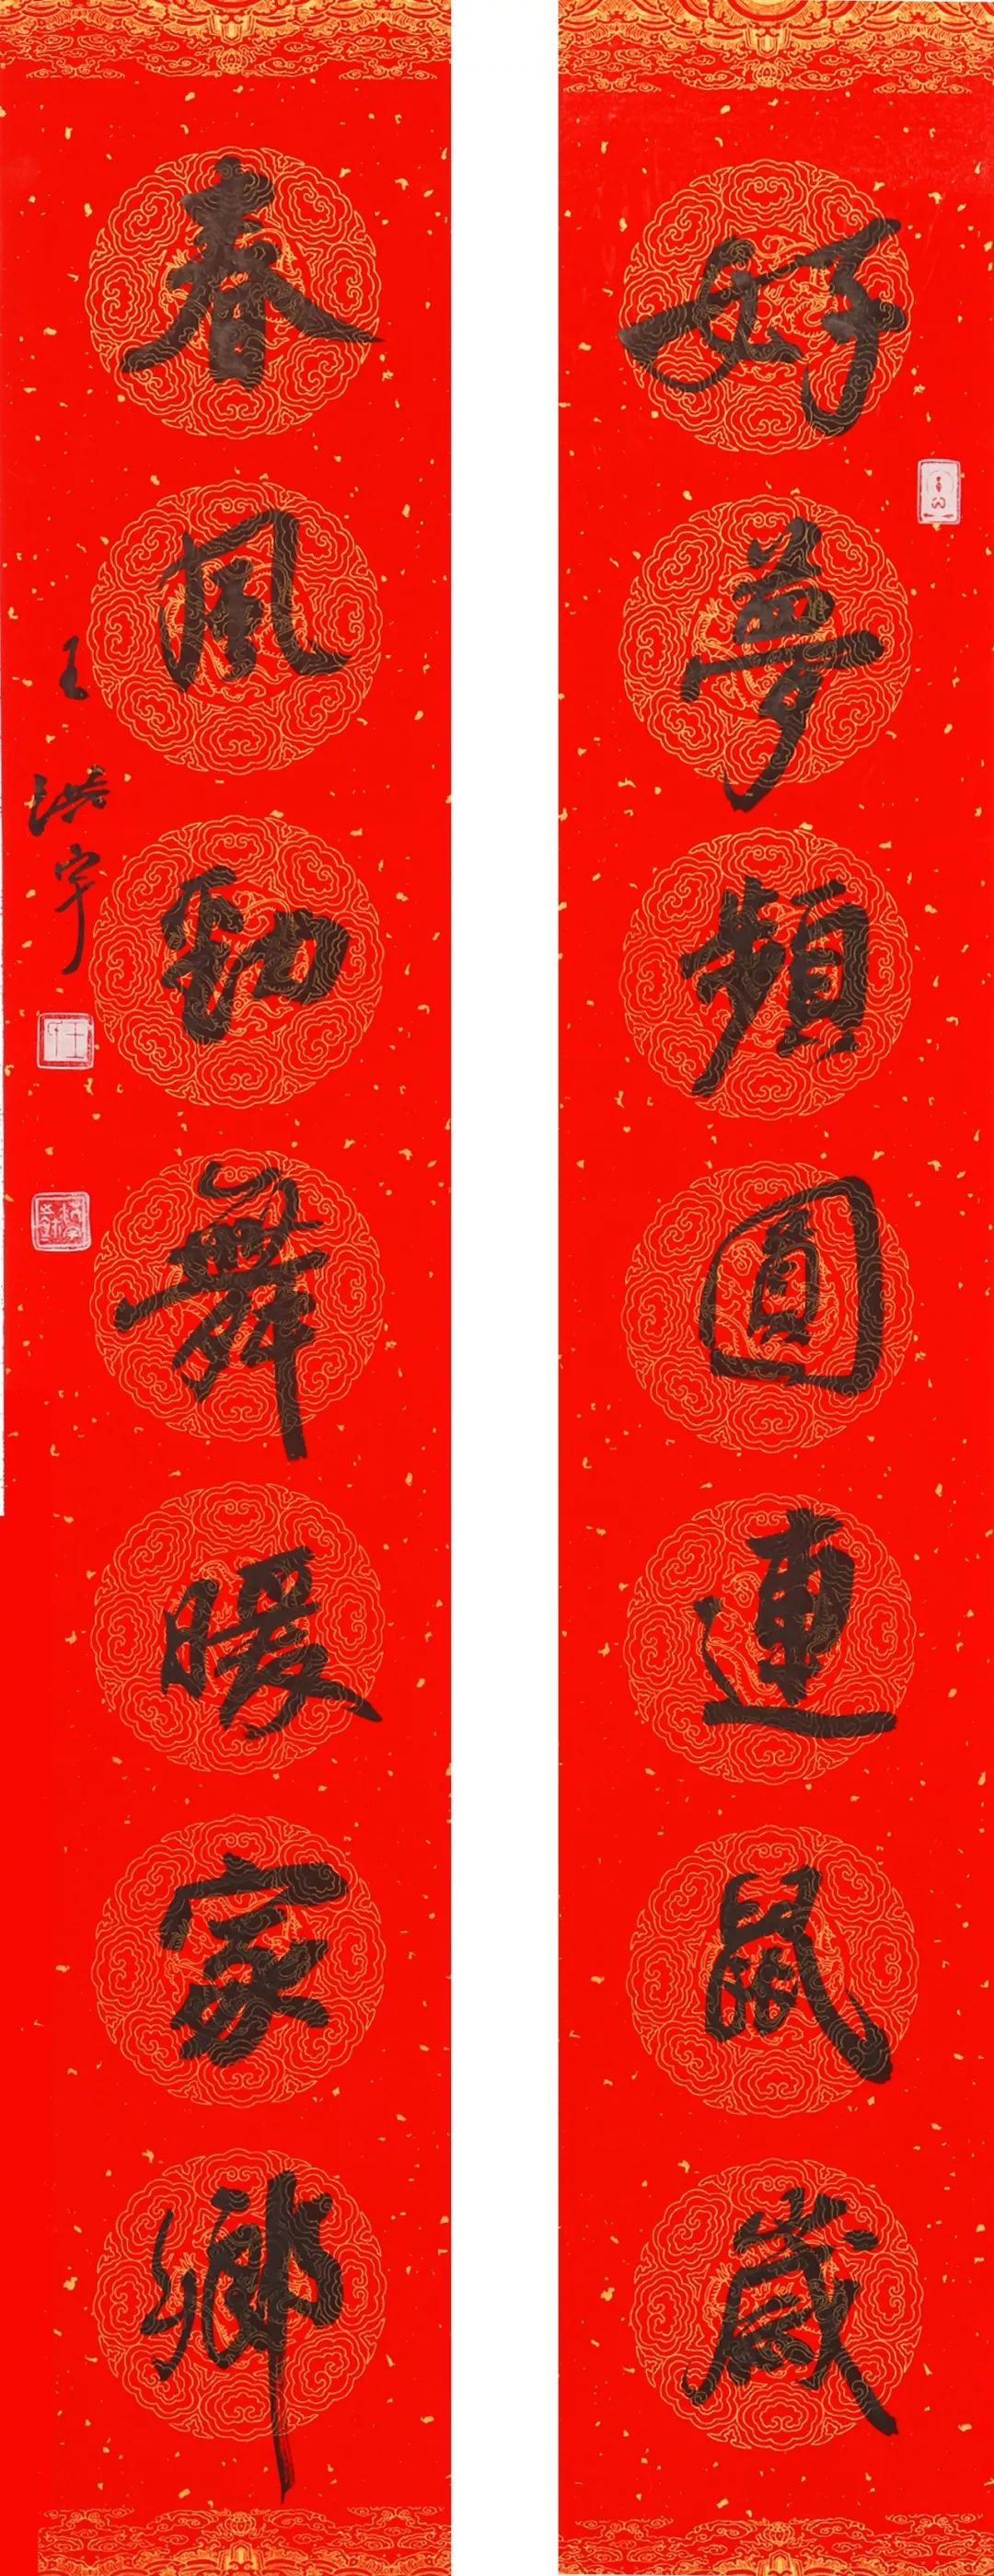 好夢頻圓連鼠歲
春風勁舞暖家鄉
王洪宇